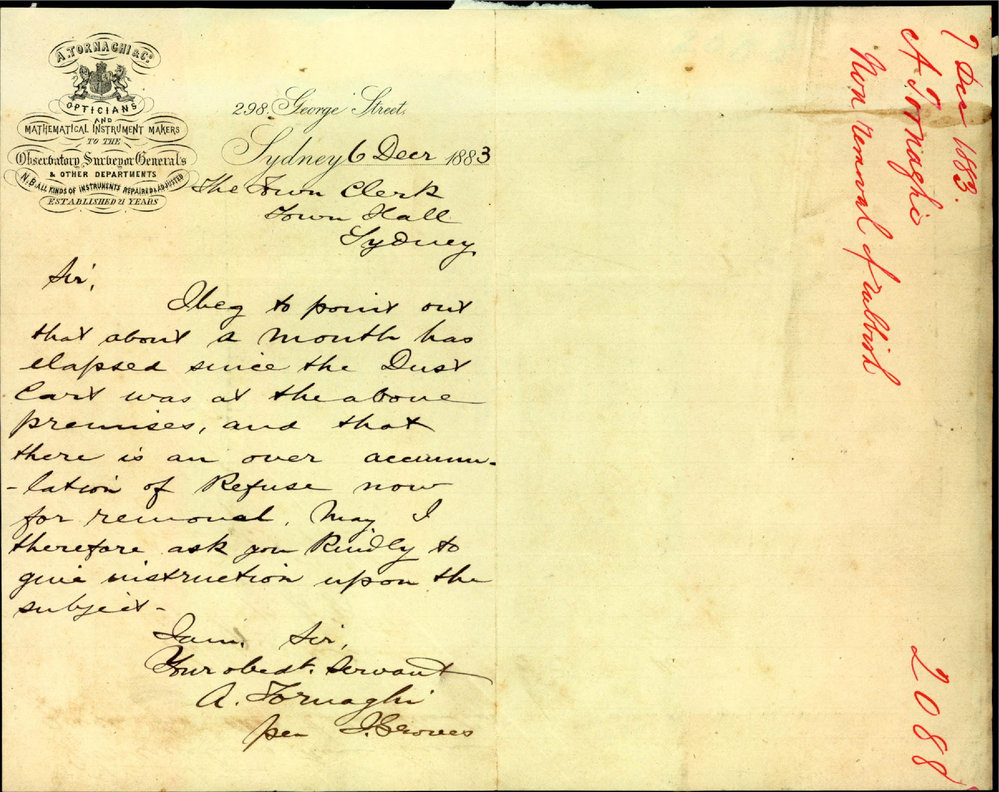 A. TORNAGHI & Co.
OPTICIANS
AND
MATHEMATICAL INSTRUMENT MAKERS
TO THE
Observatory Surveyor General's
& OTHER DEPARTMENTS
N.B. ALL KINDS OF INSTRUMENTS REPAIRED & ADJUSTED
ESTABLISHED 21 YEARS
298, George Street,
Sydney 6 Decr 1883
The Town Clerk
Town Hall
Sydney
Sir,
I beg to point out
that about a month has
elapsed since the Dust
Cart was at the above
premises, and that
there is an over accumu-
-lation of Refuse now
for removal. May I
therefore ask you Kindly to
give instruction upon the
subject -
I am, Sir,
Your obedt. Servant
A. Tornaghi
per J. Groves
7 Dec 1883.
A Tornaghi
Non removal of rubbish
2088